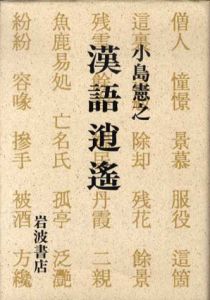 小島憲之
漢語逍遙
岩波書店
僧人 憧憬 景慕 服役 這箇
這裏 除却 残花 餘景
丹霞 二親
魚鹿易処 亡名氏 孤亭 泛艷
紛紛 容喙 摻手 被酒 方纔